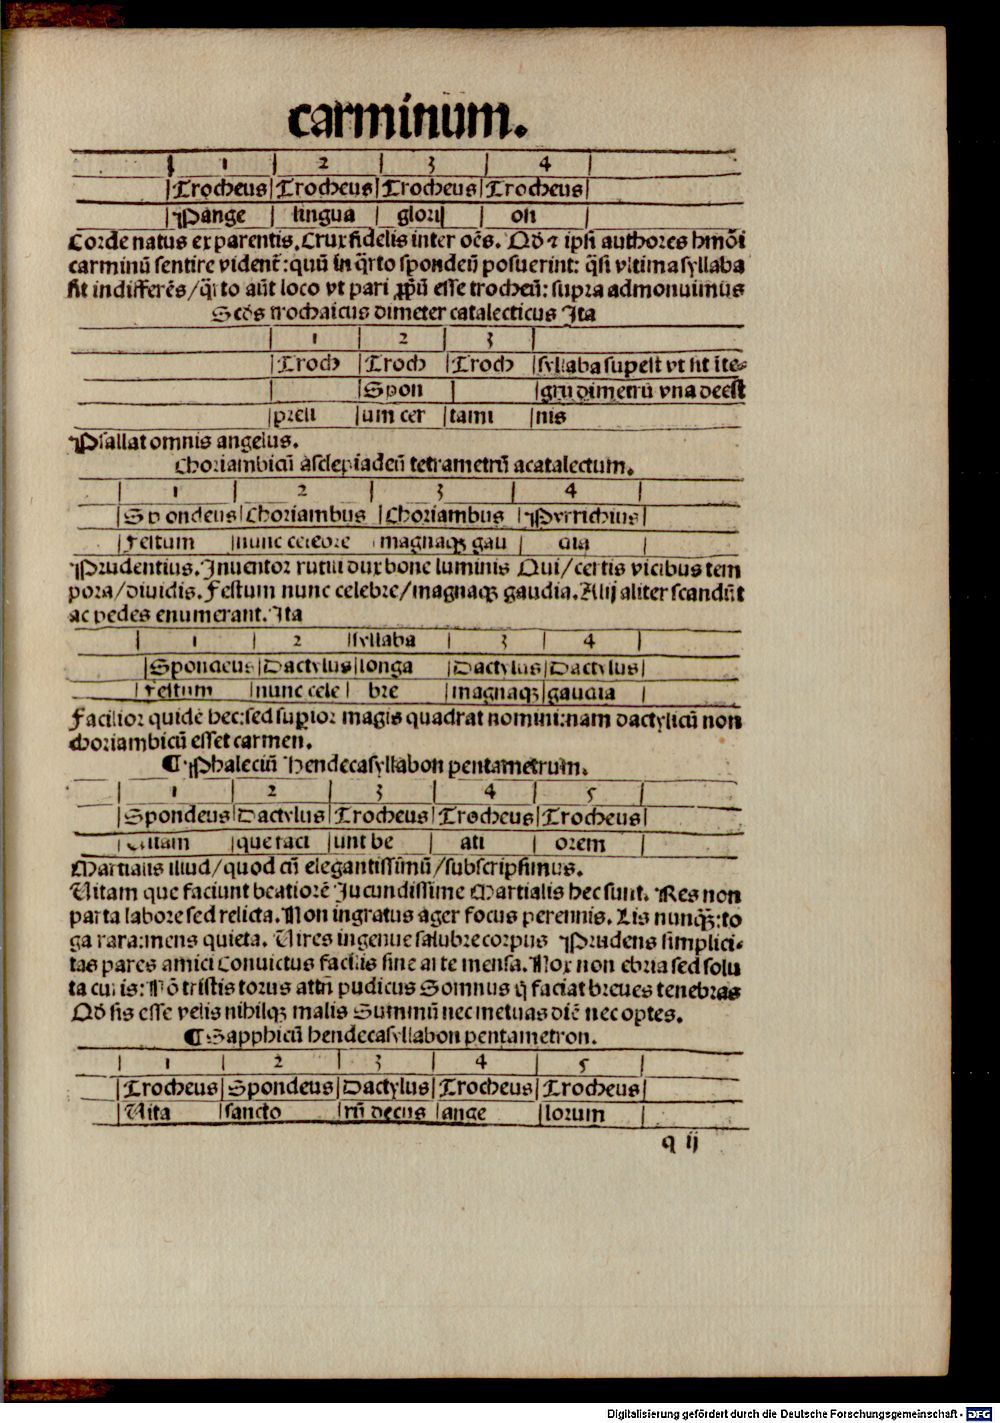 carminum.
1 2 3 4
Trocheus Trocheus Trocheus Trocheus
Pange lingua glorij osi
Corde natus ex parentis. Crux fidelis inter oēs. Qđ ⁊ ipsi authores hmōi
carminū sentire videnť: quū in q̄rto spondeū posuerint: q̄si vltima syllaba
sit indifferēs/q̄rto aūt loco vt pari ꝓpriū esse trocheū: supra admonuimus
Scđs trochaicus dimeter catalecticus Ita
1 2 3
Troch Troch Troch syllaba supest vt sit īte-
Spon grū dimetrū vna deest
preli um cer tami nis
Psallat omnis angelus.
Choriambicū asclepiadeū tetrametrū acatalectum.
1 2 3 4
Spondeus Choriambus Choriambus Pyrrichius
Festum nunc celebre magnaqꝫ gau dia
Prudentius. Inuentor rutili dux bone luminis Qui/certis vicibus tem
pora/diuidis. Festum nunc celebre/magnaqꝫ gaudia. Alij aliter scandūt
ac pedes enumerant. Ita
1 2 syllaba 3 4
Spondeus Dactylus longa Dactylus Dactylus
Festum nunc cele bre magnaqꝫ gaudia
Facilior quidē hec: sed suꝑior magis quadrat nomini: nam dactylicū non
choriambicū esset carmen.
¶ Phaleciū hendecasyllabon pentametrum.
1 2 3 4 5
Spondeus Dactylus Trocheus Trocheus Trocheus
Uitam que faci unt be ati orem
Martialis illud/quod cū elegantissimū/subscripsimus.
Uitam que faciunt beatiorē Jucundissime Martialis hec sunt. Res non
parta labore sed relicta. Non ingratus ager focus perennis. Lis nunqꝫ̄: to
ga rara: mens quieta. Uires ingenue salubre corpus Prudens simplici-
tas pares amici Conuictus facilis sine arte mensa. Nox non ebria sed solu
ta curis: Nō tristis torus attn̄ pudicus Somnus q̄ faciat breues tenebras
Qđ sis esse velis nihilqꝫ malis Summū nec metuas diē nec optes.
¶ Sapphicū hendecasyllabon pentametron.
1 2 3 4 5
Trocheus Spondeus Dactylus Trocheus Trocheus
Uita sancto rū decus ange lorum
q ij
Digitalisierung gefördert durch die Deutsche Forschungsgemeinschaft - DFG